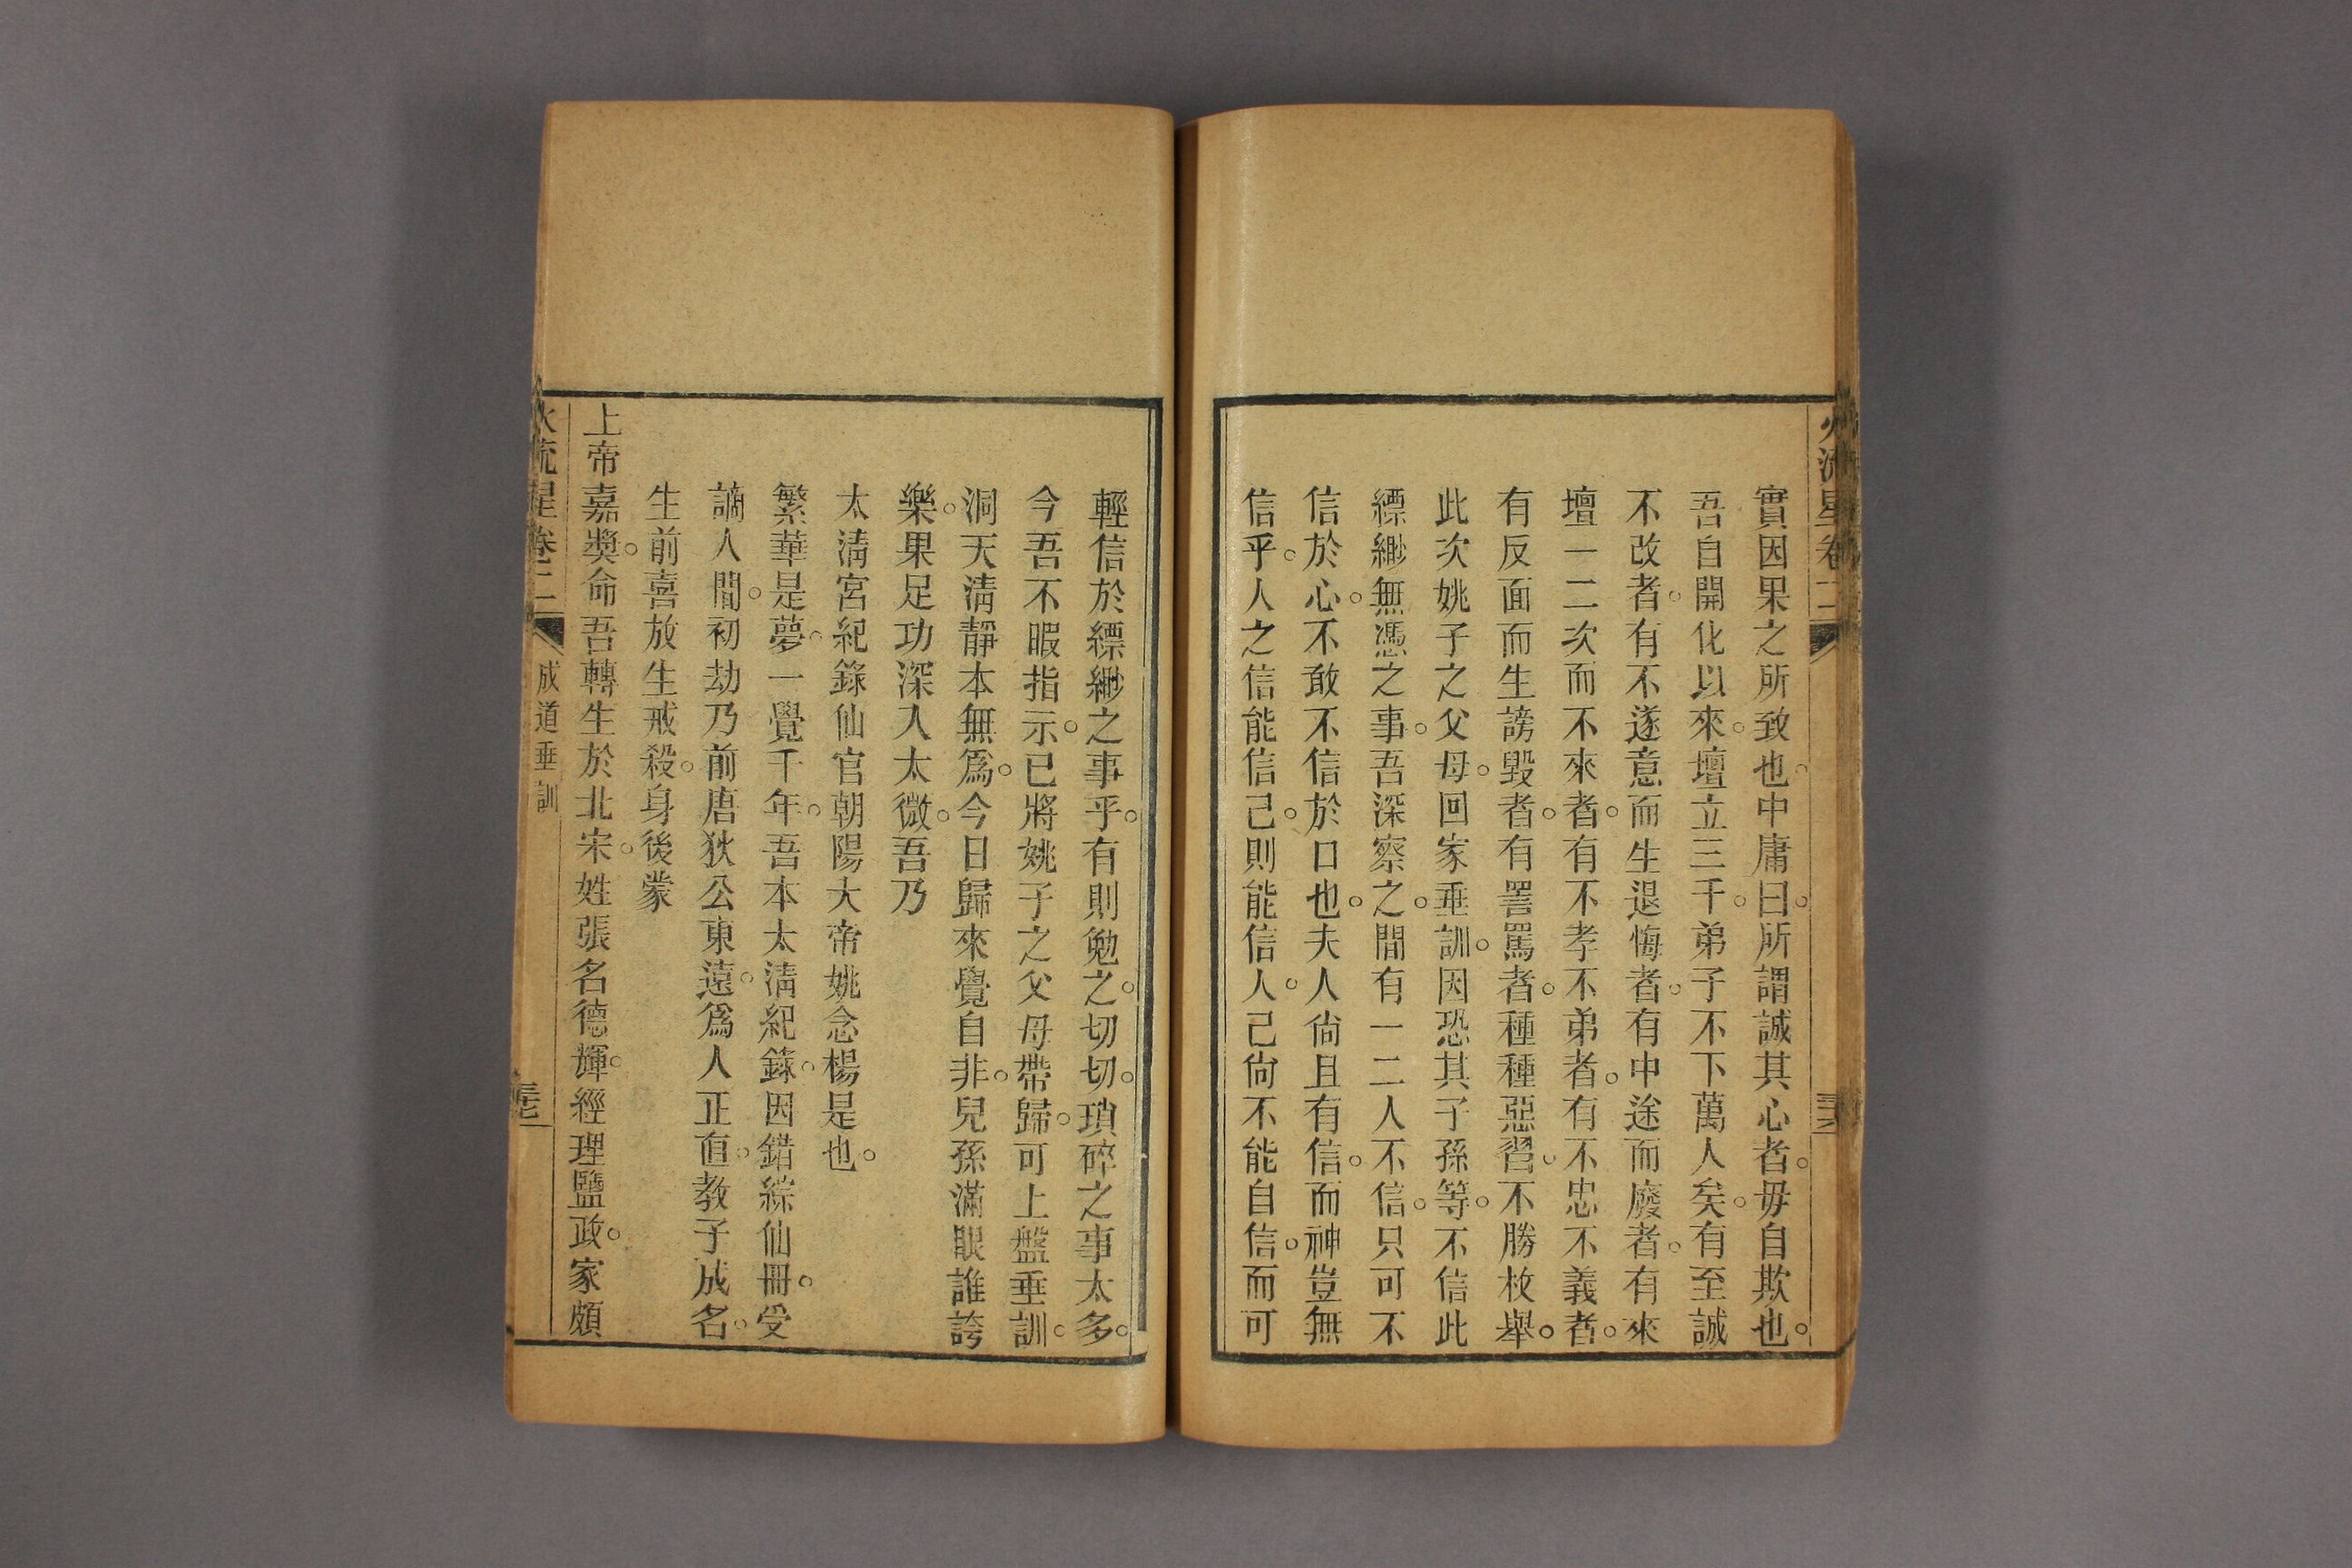 實因果之所致也。中庸曰。所謂誠其心者。毋自欺也。
吾自開化以來。壇立三千。弟子不下萬人矣。有至誠
不改者。有不遂意而生退悔者。有中途而廢者。有來
壇一二次而不來者。有不孝不弟者。有不忠不義者。
有反面而生謗毀者。有詈罵者。種種惡習。不勝枚舉。
此次姚子之父母。回家垂訓。因恐其子孫等。不信此
縹緲無憑之事。吾深察之。間有一二人不信。只可不
信於心。不敢不信於口也。夫人尙且有信。而神豈無
信乎。人之信能信己。則能信人。己尙不能自信。而可
輕信於縹緲之事乎。有則勉之。切切。瑣碎之事太多。
今吾不暇指示。已將姚子之父母帶歸。可上盤垂訓。
洞天清靜本無爲。今日歸來覺自非。兒孫滿眼誰誇
樂。果足功深入太微。吾乃
太清宮紀錄仙官朝陽大帝姚念楊是也。
繁華是夢。一覺千年。吾本太清紀錄。因錯綜仙冊。受
謫人間。初劫乃前唐狄公東遠。爲人正直。教子成名。
生前喜放生戒殺。身後蒙
上帝嘉奬。命吾轉生於北宋。姓張名德輝。經理鹽政。家頗
卷二
成道垂訓